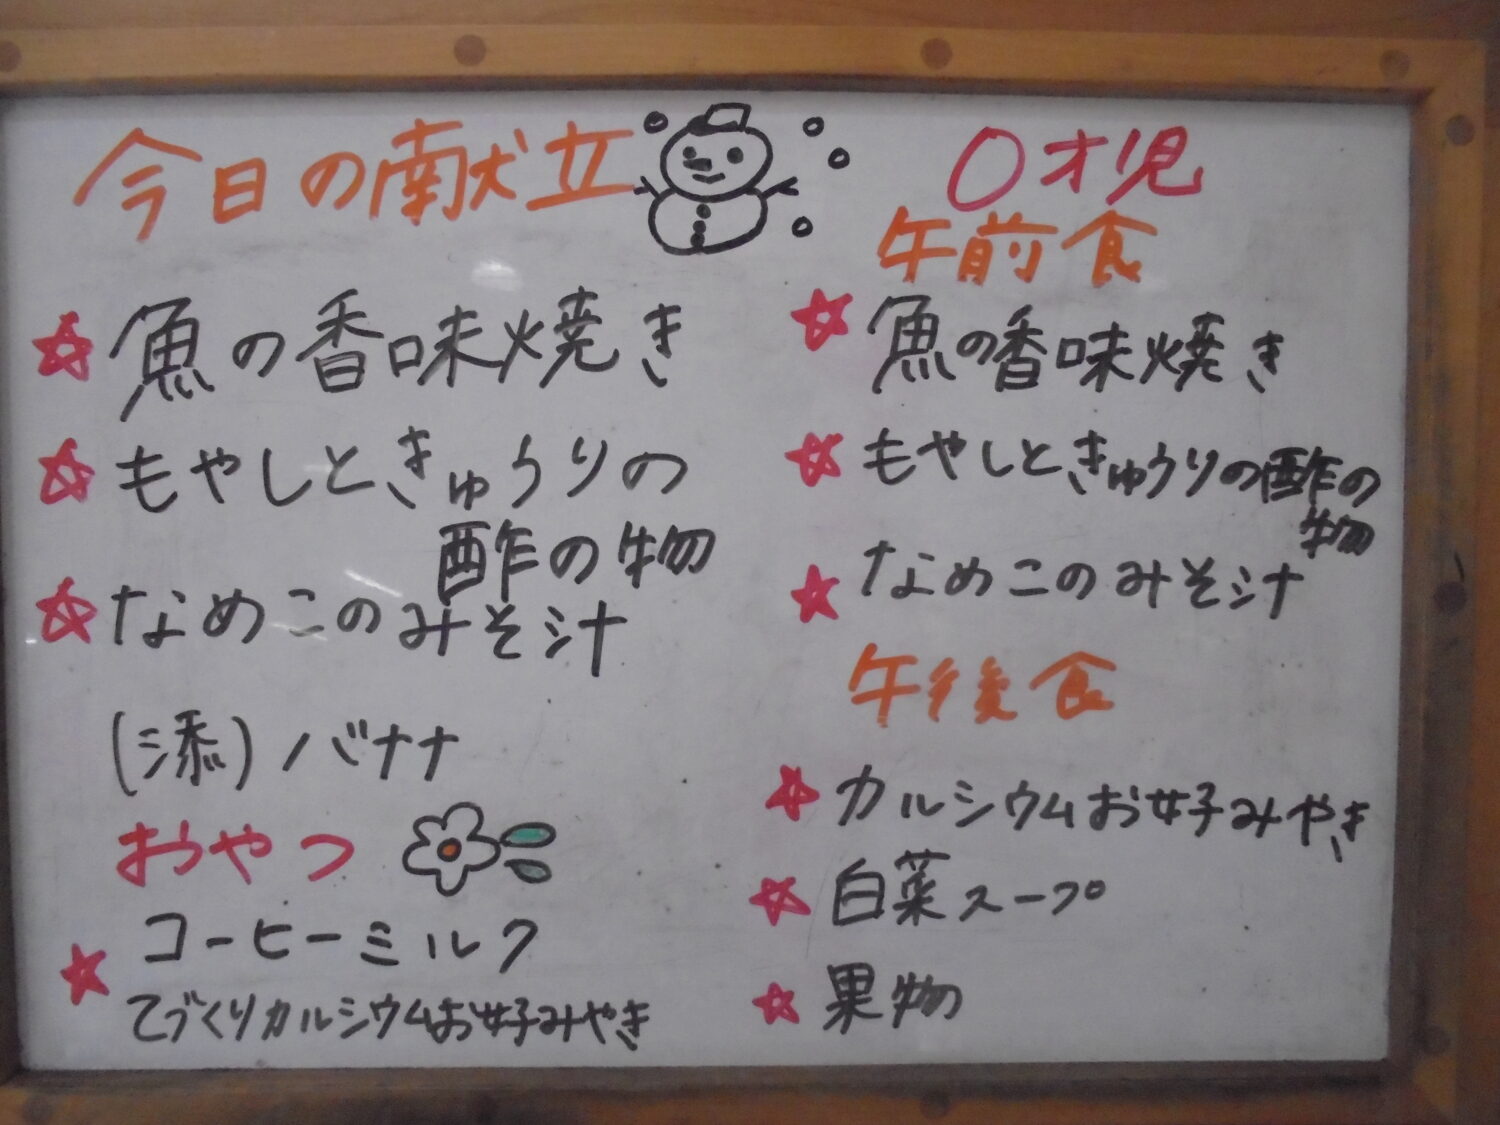 今日の献立
☆魚の香味焼き
☆もやしときゅうりの
酢の物
☆なめこのみそ汁
(添)バナナ
おやつ
コーヒーミルク
☆てづくりカルシウムお好みやき
0才児
午前食
☆魚の香味焼き
☆もやしときゅうりの酢の
物
☆なめこのみそ汁
午後食
☆カルシウムお好みやき
☆白菜スープ
☆果物